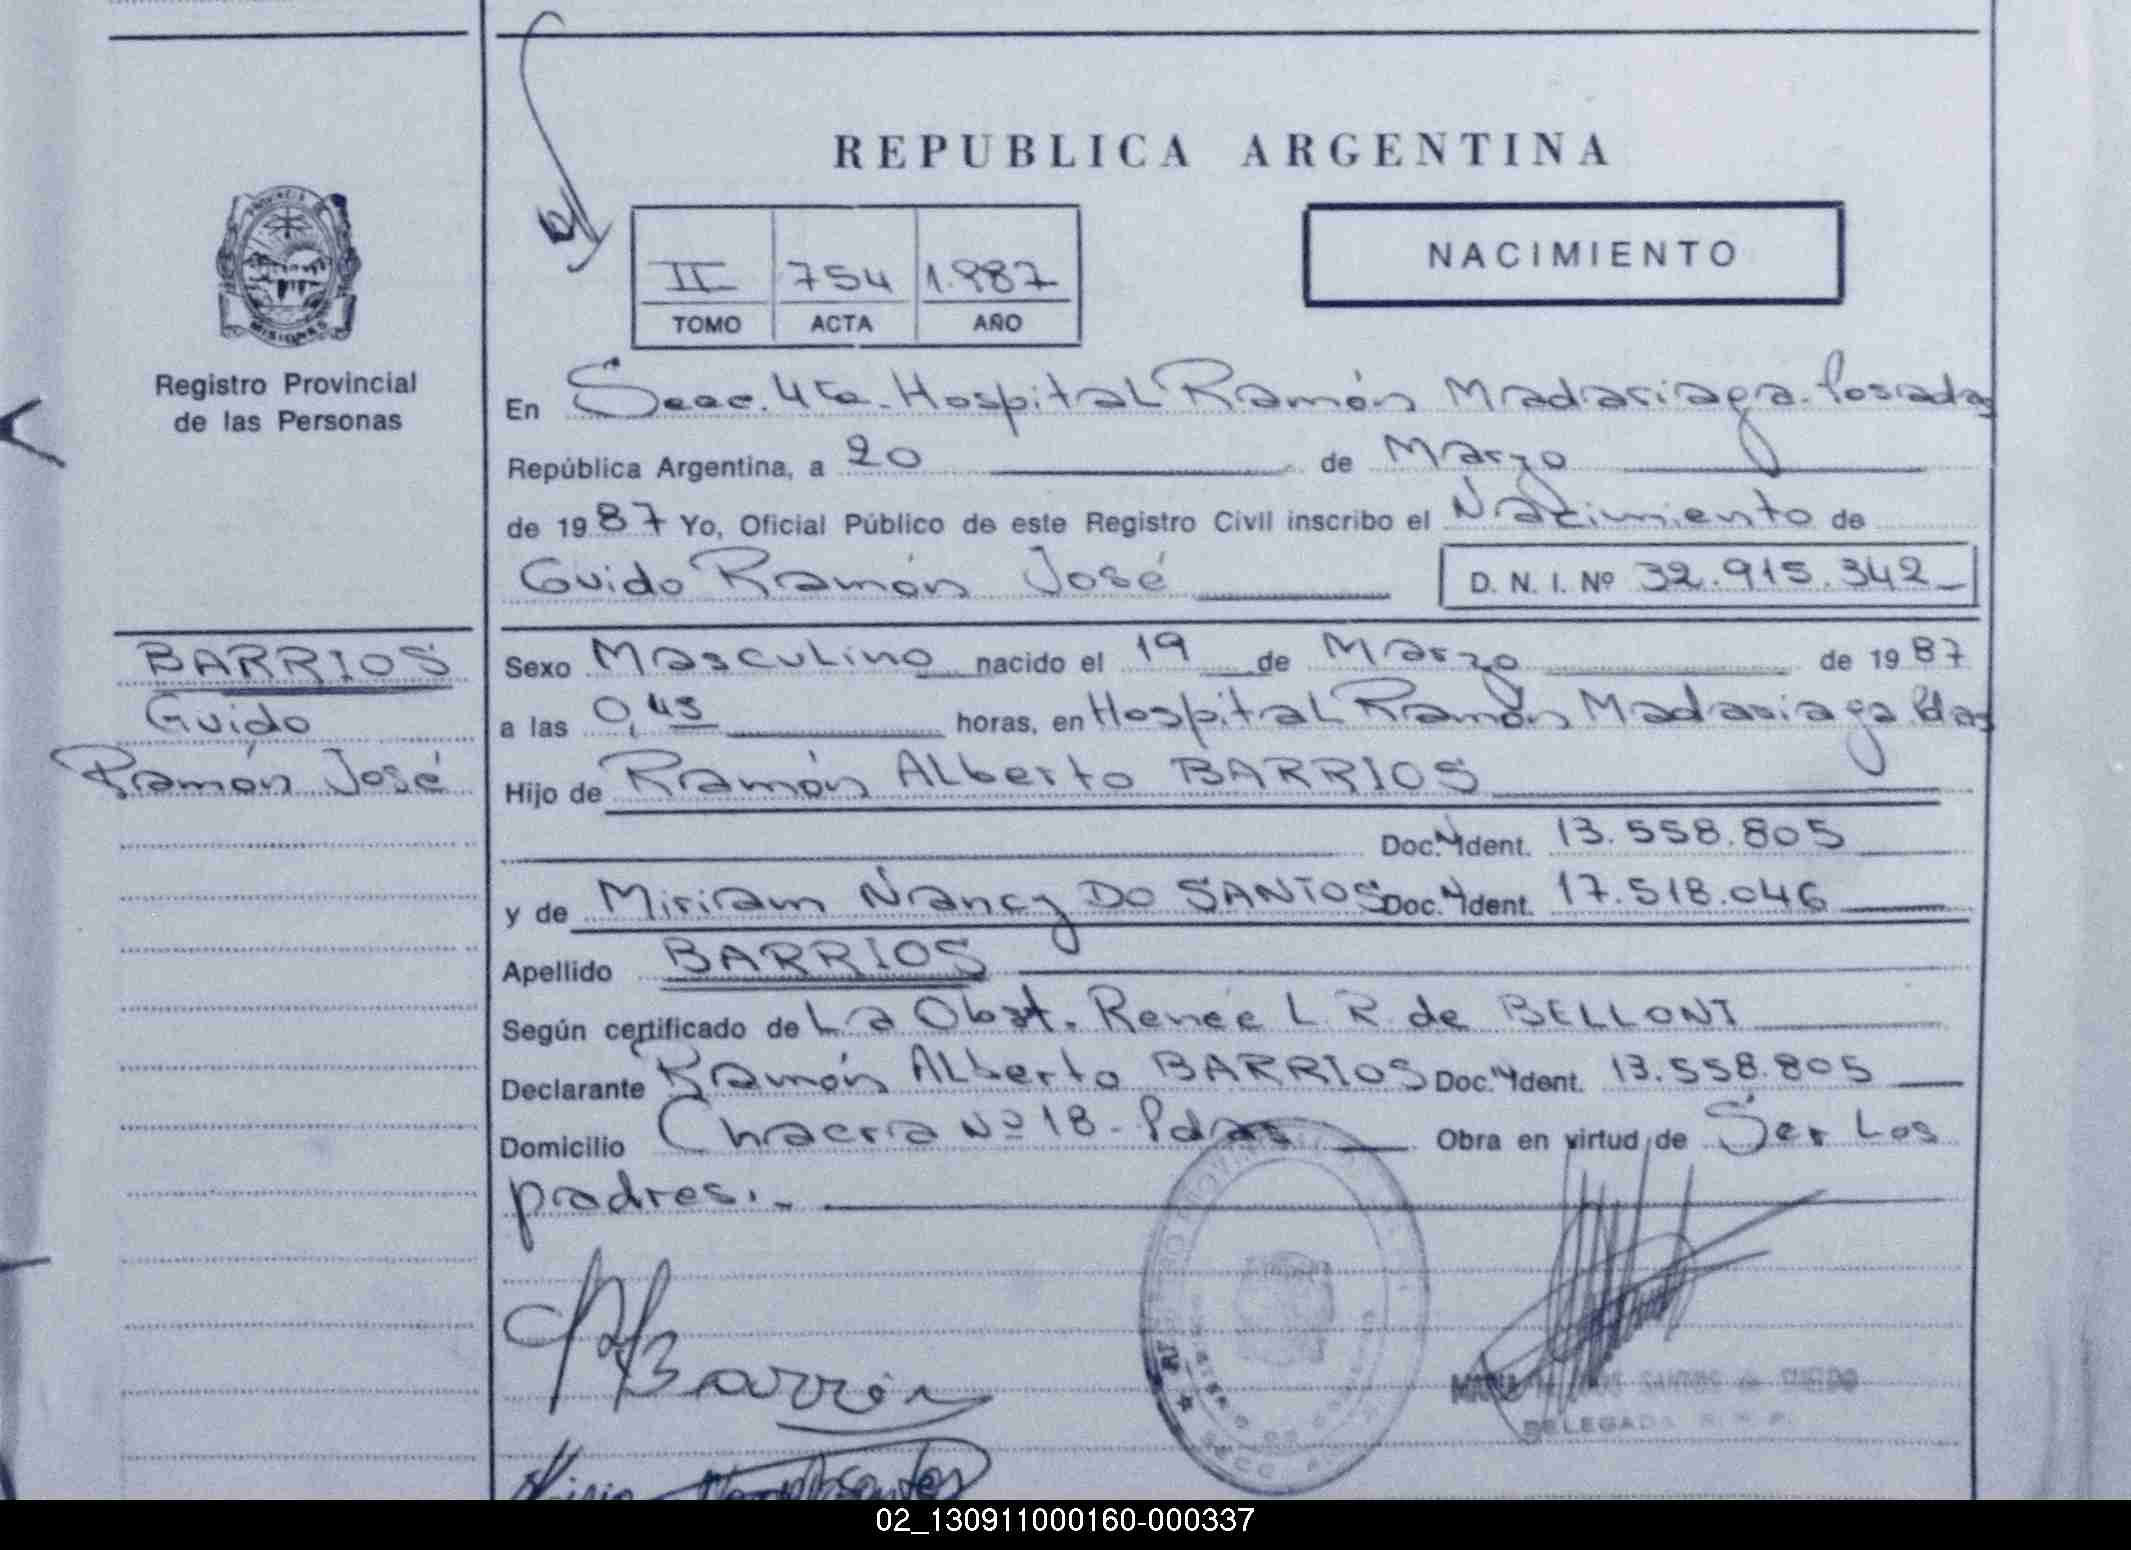 REPUBLICA ARGENTINA
NACIMIENTO
II 754 1.987
TOMO ACTA AÑO
PROVINCIA DE
MISIONES
Registro Provincial
de las Personas
En Secc. 4ta. Hospital Ramón Madariaga. Posadas
República Argentina, a 20 de Marzo
de 1987 Yo, Oficial Público de este Registro Civil inscribo el Nacimiento de
Guido Ramón José D. N. I. Nº 32.915.342
BARRIOS
Guido
Ramón José
Sexo Masculino nacido el 19 de Marzo de 1987
a las 0,45 horas, en Hospital Ramón Madariaga Pdas
Hijo de Ramón Alberto BARRIOS
Doc. Ident. 13.558.805
y de Miriam Nancy DO SANTOS Doc. Ident. 17.518.046
Apellido BARRIOS
Según certificado de La Obst. Renée L. R. de BELLONI
Declarante Ramón Alberto BARRIOS Doc. Ident. 13.558.805
Domicilio Chacra Nº 18 - Pdas Obra en virtud de Ser Los
padres.-
DELEGADA R. P. P.
02_130911000160-000337